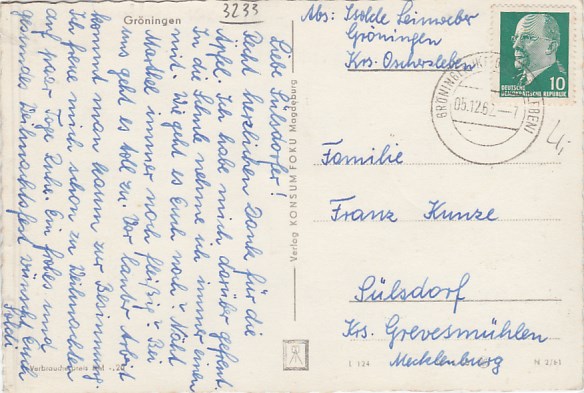 Gröningen
3233
Abs: Isolde Leinweber
Gröningen
Krs. Oschersleben
DEUTSCHE
DEMOKRATISCHE REPUBLIK
10
05.12.62.-7
4,-
Liebe Sülsdorfer!
Recht herzlichen Dank für die
Äpfel. Ich habe mich darüber gefreut.
In die Schule nehme ich immer einen
mit. Wie geht es Euch noch? Näht
Marthel immer noch fleißig? Bei
uns geht es toll zu. Vor lauter Arbeit
kommt man kaum zur Besinnung.
Ich freue mich schon zu Weihnachten
auf paar Tage Ruhe. Ein frohes und
gesundes Weihnachtsfest wünscht Euch
Isolde
Verlag KONSUM FOKU Magdeburg
Familie
Franz Kunze
Sülsdorf
Krs. Grevesmühlen
Mecklenburg
Verbraucherpreis DM -,20
L 124
N 2/61